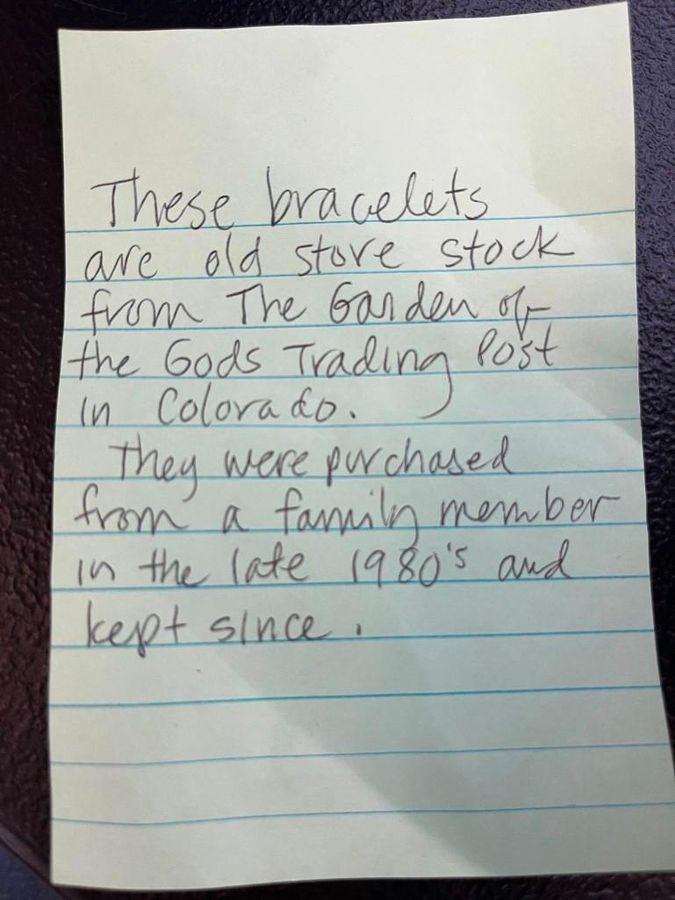 These bracelets
are old store stock
from The Garden of
the Gods Trading Post
in Colorado.
They were purchased
from a family member
in the late 1980's and
kept since.